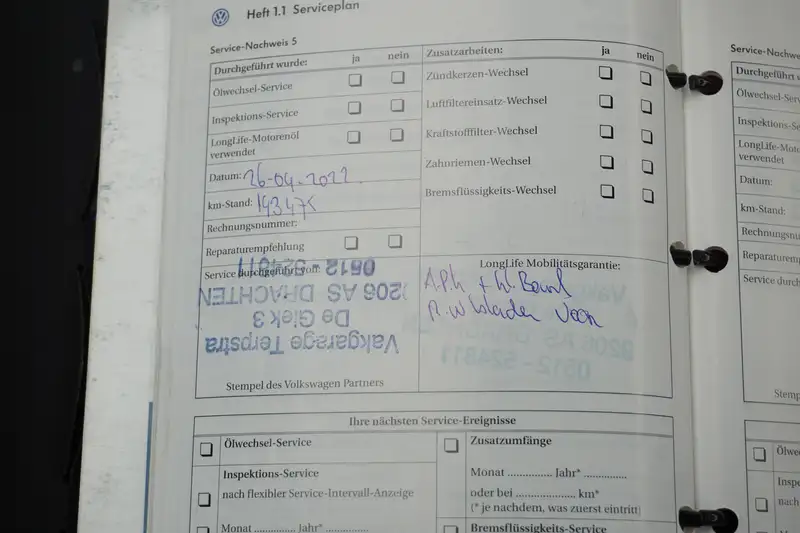 Heft 1.1 Serviceplan
Service-Nachweis 5
Durchgeführt wurde: ja nein
Ölwechsel-Service
Inspektions-Service
LongLife-Motorenöl
verwendet
Datum: 26-04-2022
km-Stand: 193475
Rechnungsnummer:
Reparaturempfehlung
Service durchgeführt von:
0512-524811
9206 AS DRACHTEN
De Giek 3
Vakgarage Terpstra
Stempel des Volkswagen Partners
Zusatzarbeiten: ja nein
Zündkerzen-Wechsel
Luftfiltereinsatz-Wechsel
Kraftstofffilter-Wechsel
Zahnriemen-Wechsel
Bremsflüssigkeits-Wechsel
LongLife Mobilitätsgarantie:
A.P.k +
Ihre nächsten Service-Ereignisse
Ölwechsel-Service
Inspektions-Service
nach flexibler Service-Intervall-Anzeige
Monat .............. Jahr* ..............
Zusatzumfänge
Monat .............. Jahr* ..............
oder bei .................... km*
(* je nachdem, was zuerst eintritt)
Bremsflüssigkeits-Service
Service-Nachwe
Durchgeführt wu
Ölwechsel-Serv
Inspektions-Ser
LongLife-Moto
verwendet
Datum:
km-Stand:
Rechnungsnum
Reparaturemp
Service durch
Stemp
Ölwe
Inspe
nach